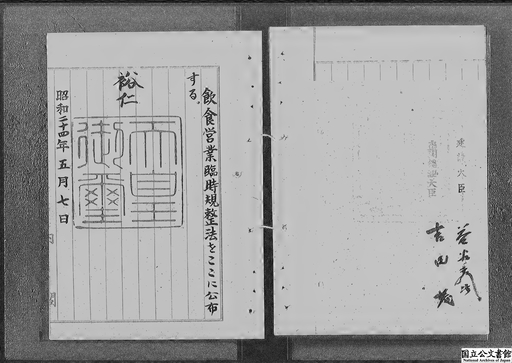 建設大臣 益谷秀次
内閣総理大臣 吉田茂
飲食営業臨時規整法をここに公布
する
裕仁
天皇
御璽
昭和二十四年五月七日
内閣
国立公文書館
National Archives of Japan